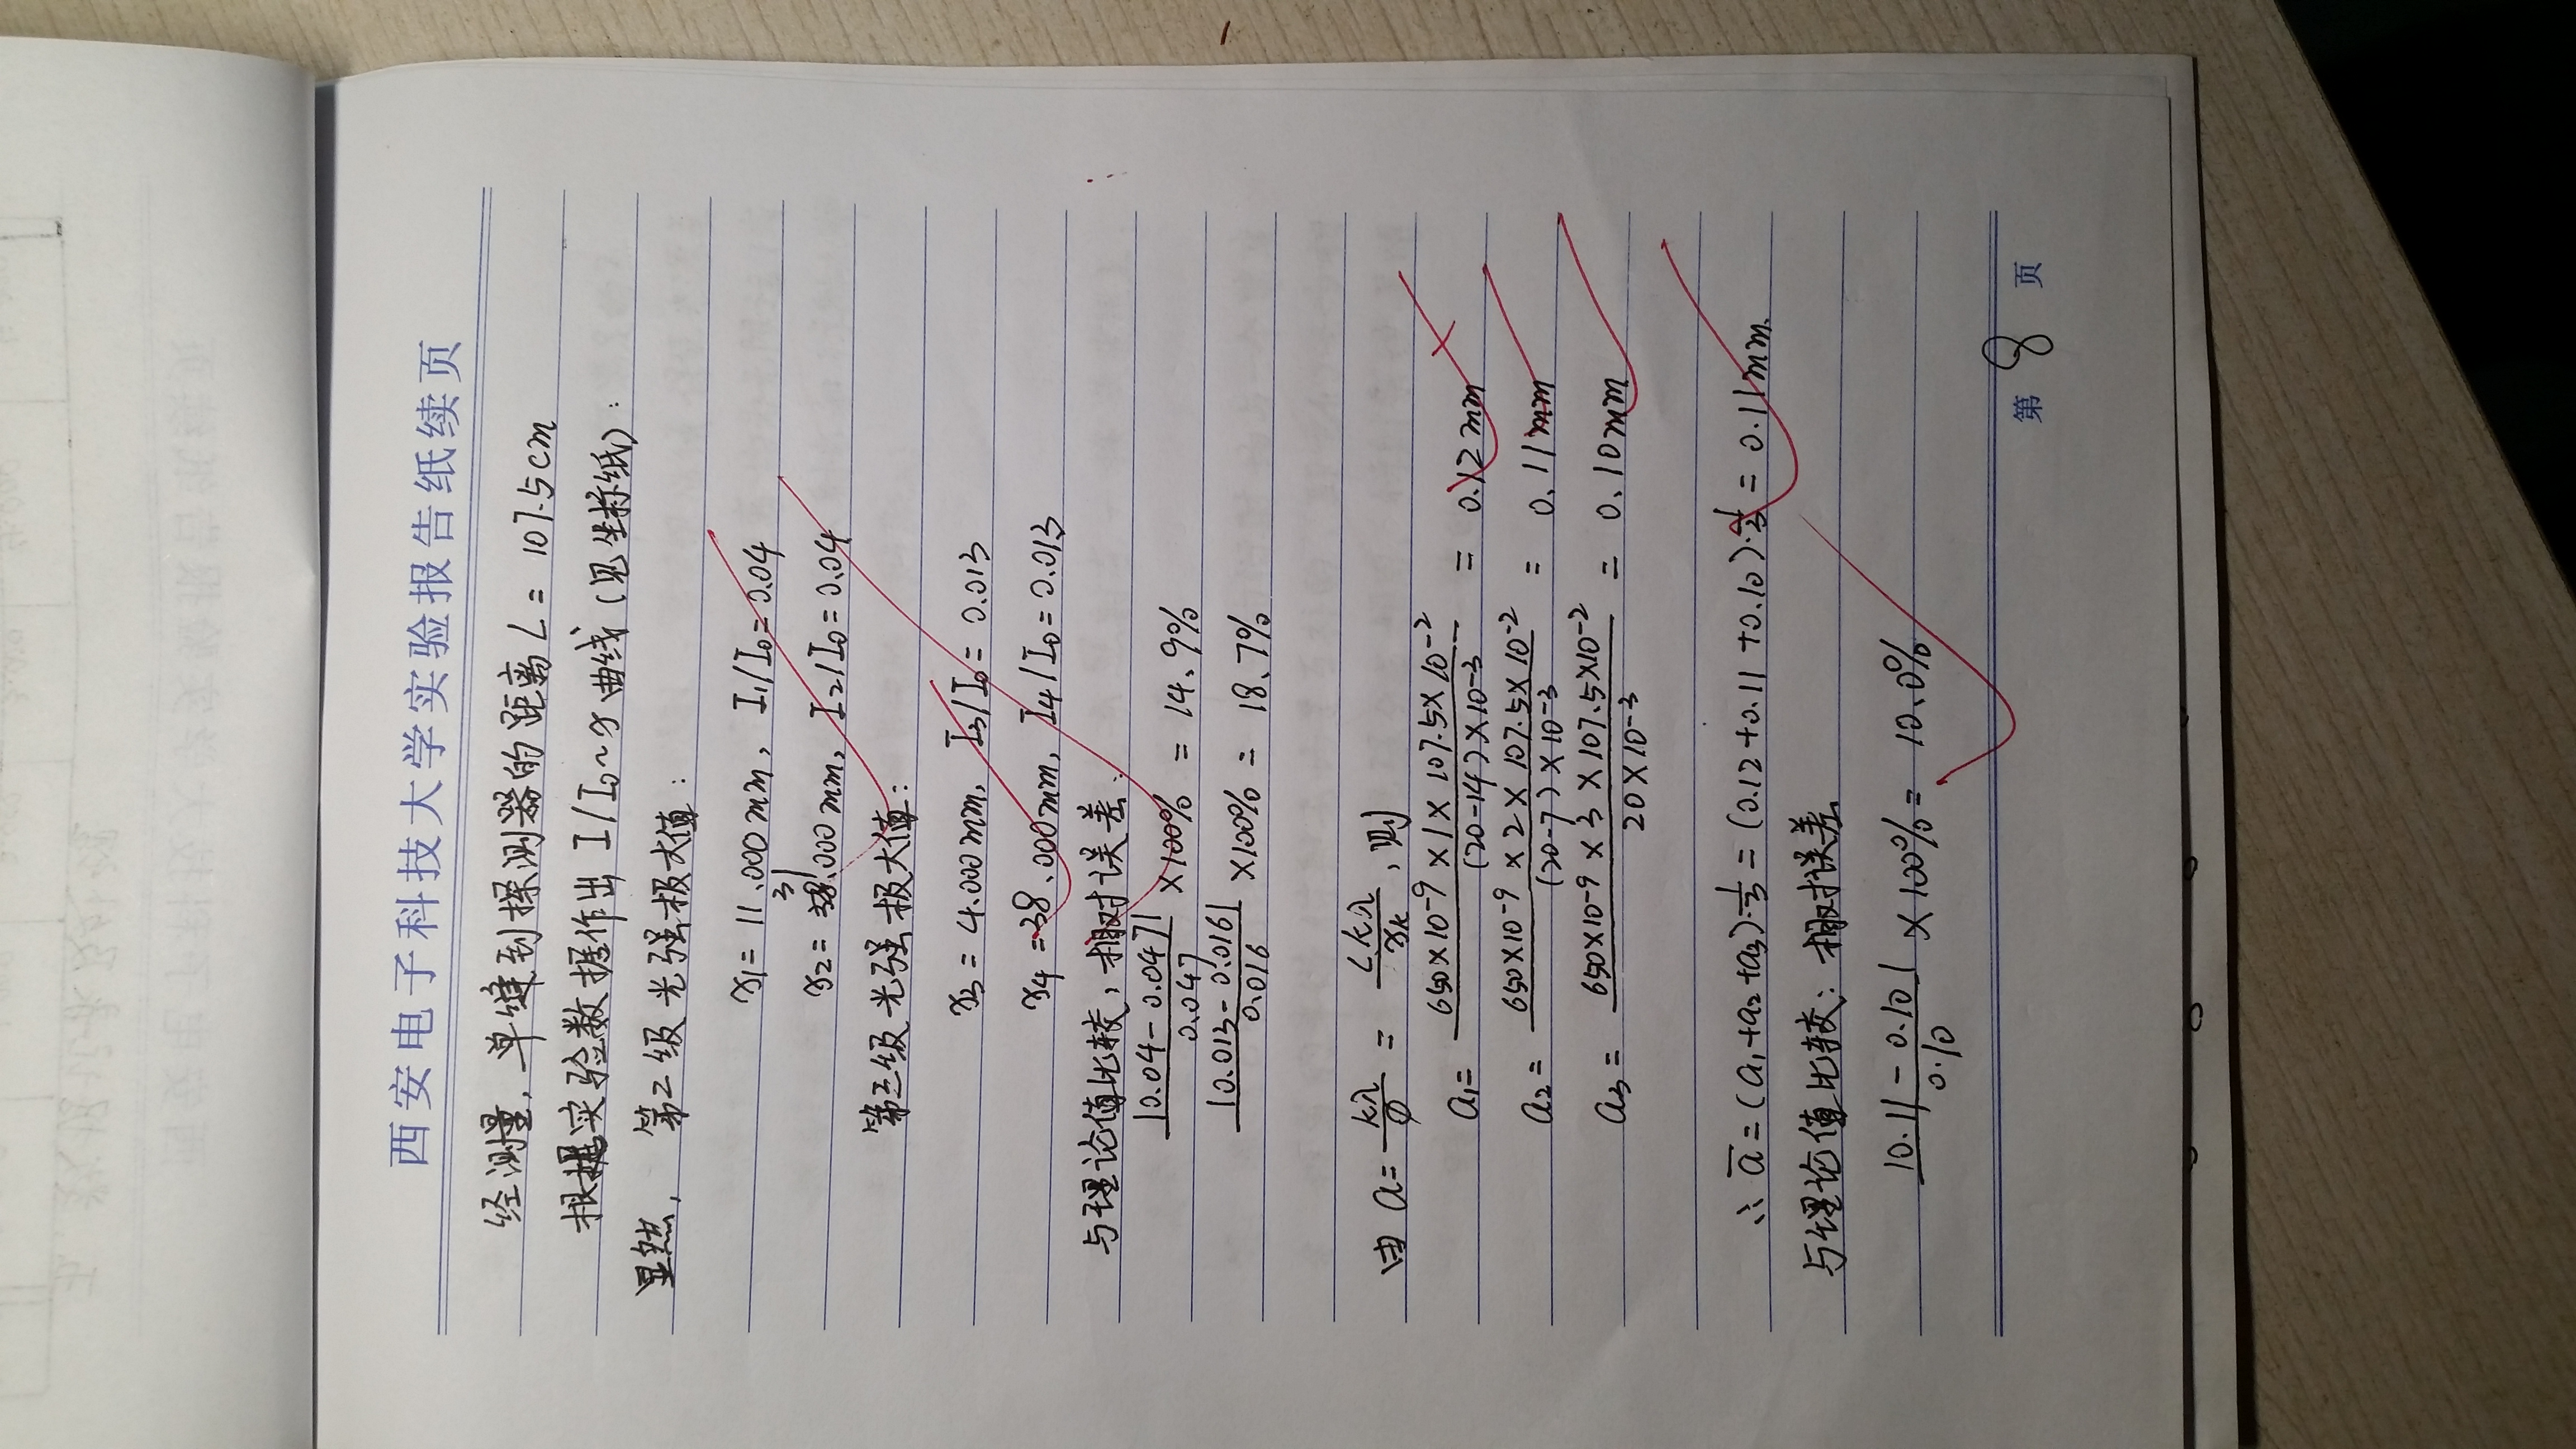 西安电子科技大学实验报告纸续页
经测量,单缝到探测器的距离L= 107.5cm
根据实验数据作出 I/I₀~x曲线(见坐标纸):
显然, 第二级光强极大值:
x₁= 11.000mm, I₁/I₀=0.04
31
x₂= 38.000mm, I₂/I₀=0.04
第三级光强极大值:
x₃ = 4.000mm, I₃/I₀= 0.013
x₄ =38.000mm, I₄/I₀=0.013
与理论值比较,相对误差:
|0.04-0.047|/0.047 ×100% = 14.9%
|0.013-0.016|/0.016 ×100% = 18.7%
由 a= kλ/φ = Lkλ/xk ,则
a₁= 650×10⁻⁹ ×1× 107.5×10⁻²/(20-14)×10⁻³ = 0.12mm
a₂= 650×10⁻⁹ ×2× 107.5×10⁻²/(20-7)×10⁻³ = 0.11mm
a₃= 650×10⁻⁹ ×3×107.5×10⁻²/20×10⁻³ = 0.10mm
∴ a̅=(a₁+a₂+a₃)·1/3 = (0.12+0.11+0.10)·1/3 = 0.11mm.
与理论值比较: 相对误差
|0.11-0.10|/0.10 ×100%= 10.0%
第 8 页